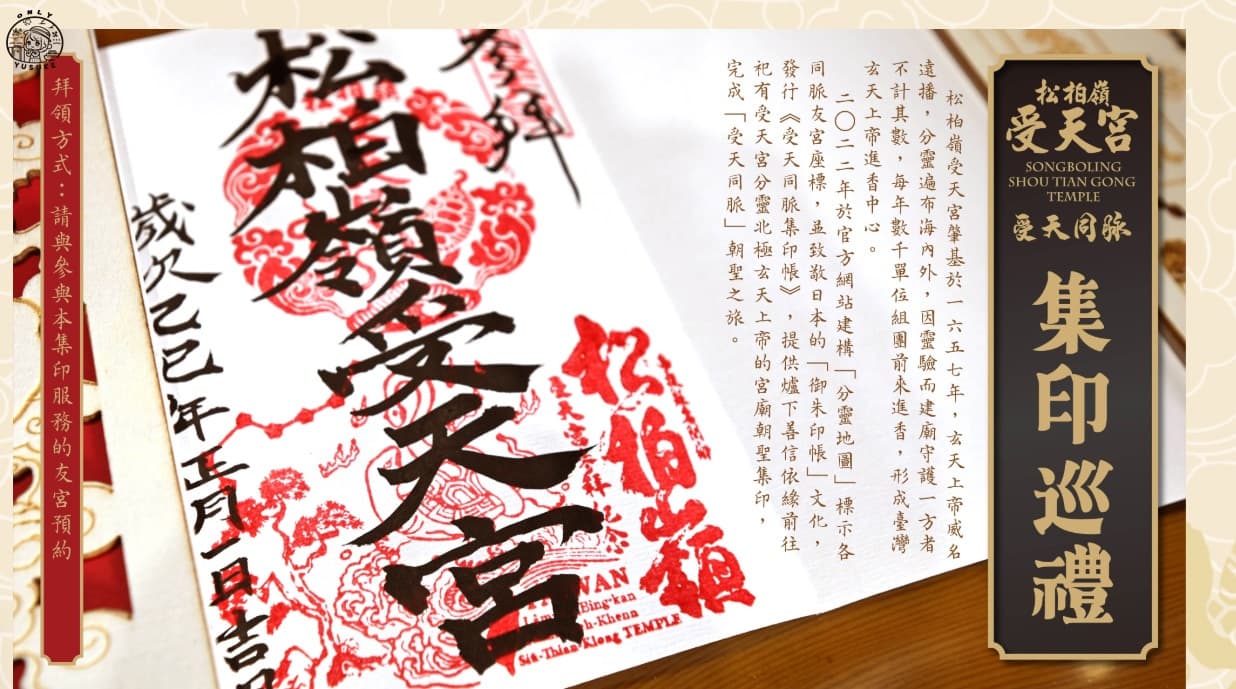 松柏嶺
受天宮
SONGBOLING
SHOU TIAN GONG
TEMPLE
受天同脈
集印巡禮
松柏嶺受天宮肇基於一六五七年，玄天上帝威名
遠播，分靈遍布海內外，因靈驗而建廟守護一方者
不計其數，每年數千單位組團前來進香，形成臺灣
玄天上帝進香中心。
二〇二二年於官方網站建構「分靈地圖」標示各
同脈友宮座標，並致敬日本的「御朱印帳」文化，
發行《受天同脈集印帳》，提供爐下善信依緣前往
祀有受天宮分靈北極玄天上帝的宮廟朝聖集印，
完成「受天同脈」朝聖之旅。
參拜
松柏嶺受天宮
歲次乙巳年正月一日吉
松柏嶺
Bing-kan
Siū-Thian Kiong TEMPLE
拜領方式：請與參與本集印服務的友宮預約
ONLY
YUSUKE